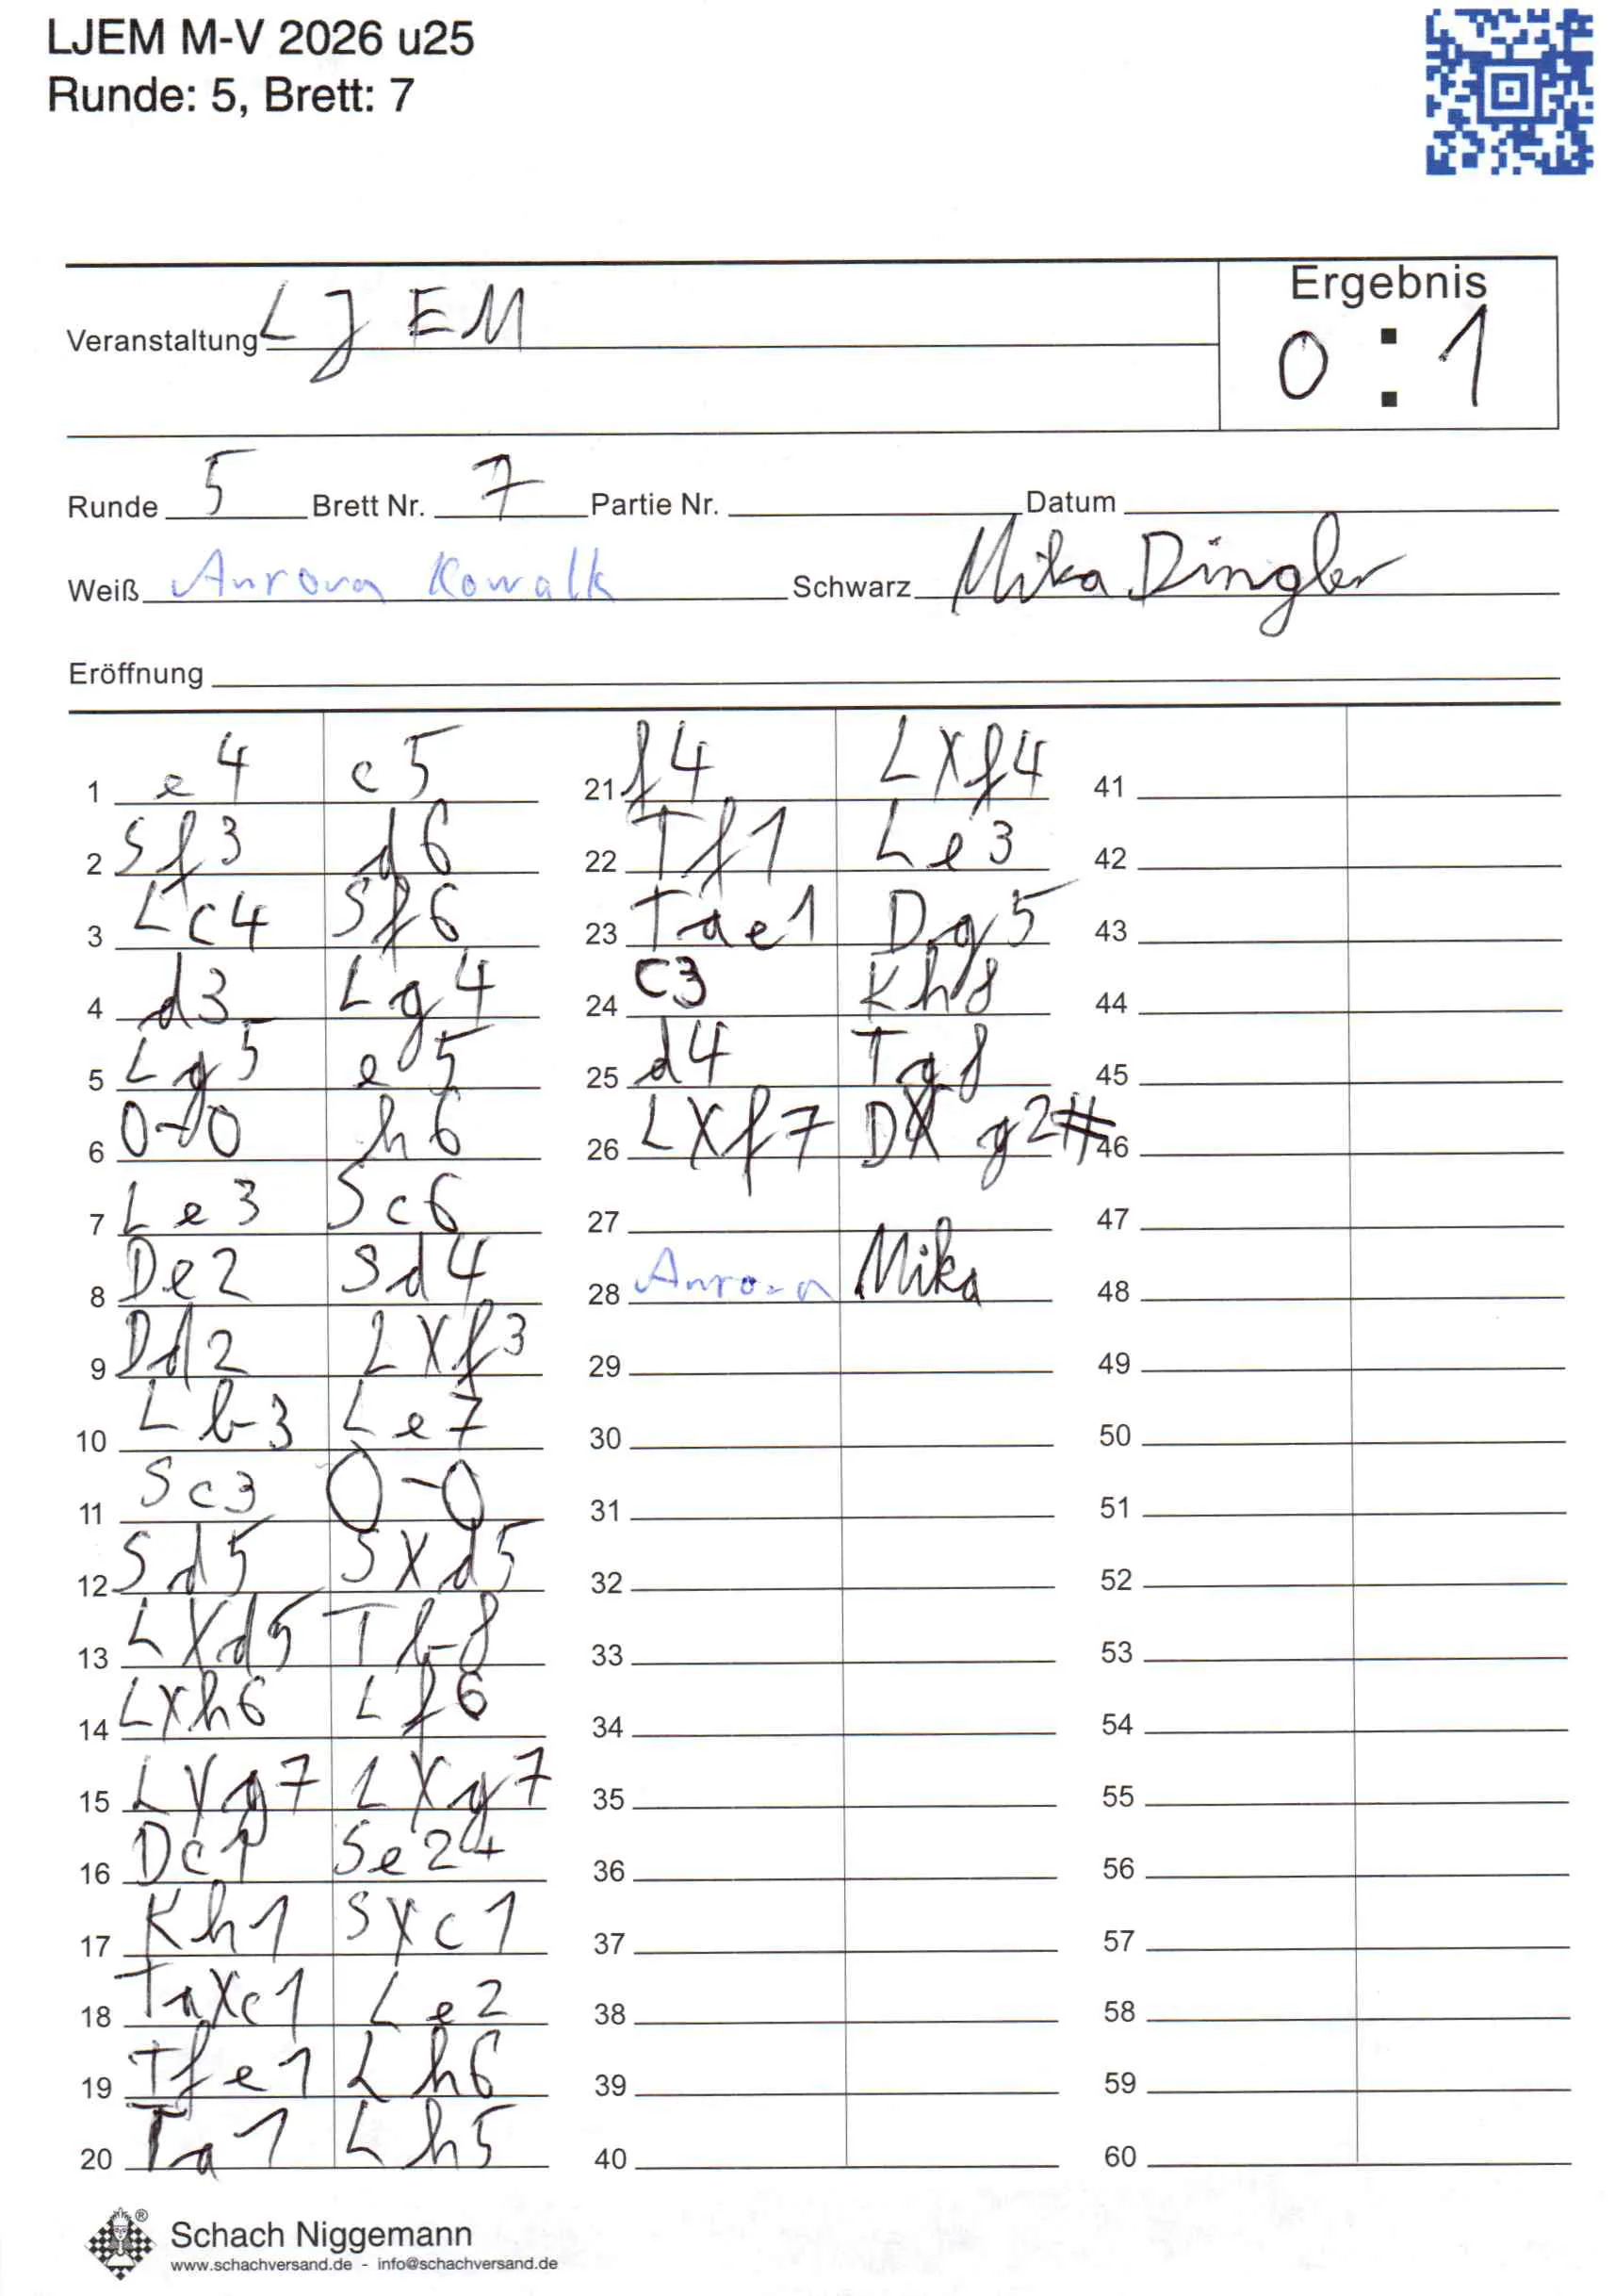 LJEM M-V 2026 u25
Runde: 5, Brett: 7
Ergebnis
Veranstaltung LJEM
0 : 1
Runde 5 Brett Nr. 7 Partie Nr. Datum
Weiß Aurora Kowalk Schwarz Mika Dingler
Eröffnung
1 e4 c5
2 Sf3 d6
3 Lc4 Sf6
4 d3 Lg4
5 Lg5 e5
6 0-0 h6
7 Le3 Sc6
8 De2 Sd4
9 Dd2 LXf3
10 Lb3 Le7
11 Sc3 0-0
12 Sd5 SXd5
13 LXd5 Tb8
14 LXh6 Lf6
15 LXg7 LXg7
16 Dc1 Se2+
17 Kh1 SXc1
18 TaXc1 Le2
19 Tfe1 Lh6
20 Ta1 Lh5
21 f4 LXf4
22 Tf1 Le3
23 Tae1 Dg5
24 c3 Kh8
25 d4 Tg8
26 LXf7 DXg2#
27
28 Aurora Mika
29
30
31
32
33
34
35
36
37
38
39
40
41
42
43
44
45
46
47
48
49
50
51
52
53
54
55
56
57
58
59
60
Schach Niggemann
www.schachversand.de - info@schachversand.de